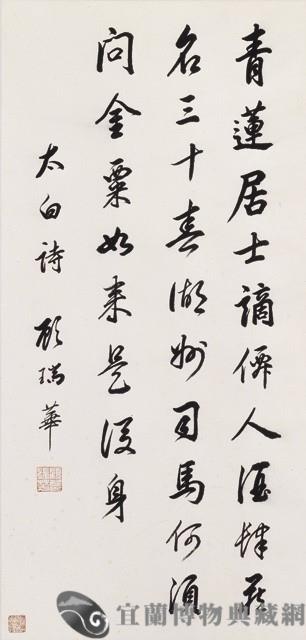 青蓮居士謫僊人酒肆花
名三十春湖州司馬何須
問金粟如來是後身
太白詩 顧瑞華
宜蘭博物典藏網